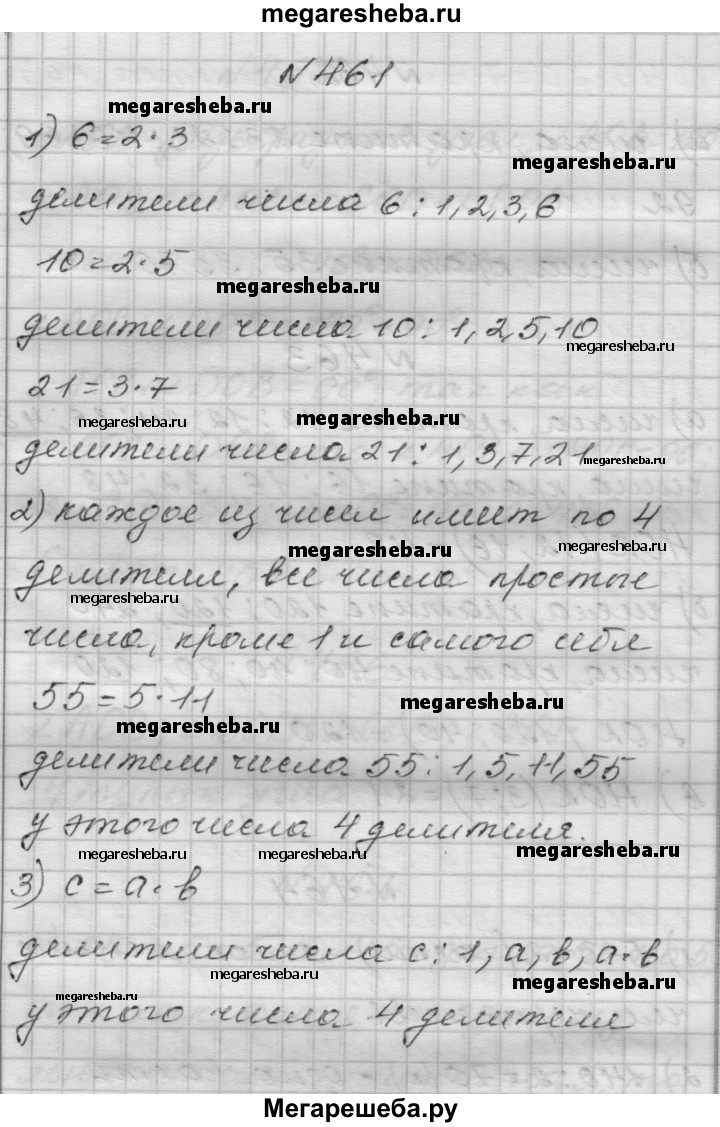 megaresheba.ru
N 461
megaresheba.ru
1) 6=2·3
megaresheba.ru
делители числа 6: 1,2,3,6
10=2·5
megaresheba.ru
делители числа 10: 1,2,5,10
megaresheba.ru
21=3·7
megaresheba.ru
megaresheba.ru
делители числа 21: 1,3,7,21
megaresheba.ru
2) каждое из чисел имеет по 4
megaresheba.ru
megaresheba.ru
делителя, все числа простые
megaresheba.ru
числа, кроме 1 и самого себя
55=5·11
megaresheba.ru
megaresheba.ru
делители числа 55: 1,5,11,55
у этого числа 4 делителя.
megaresheba.ru
megaresheba.ru
megaresheba.ru
3) c=a·b
делители числа c: 1, a, b, a·b
megaresheba.ru
megaresheba.ru
megaresheba.ru
у этого числа 4 делителя
Мегарешеба.ру